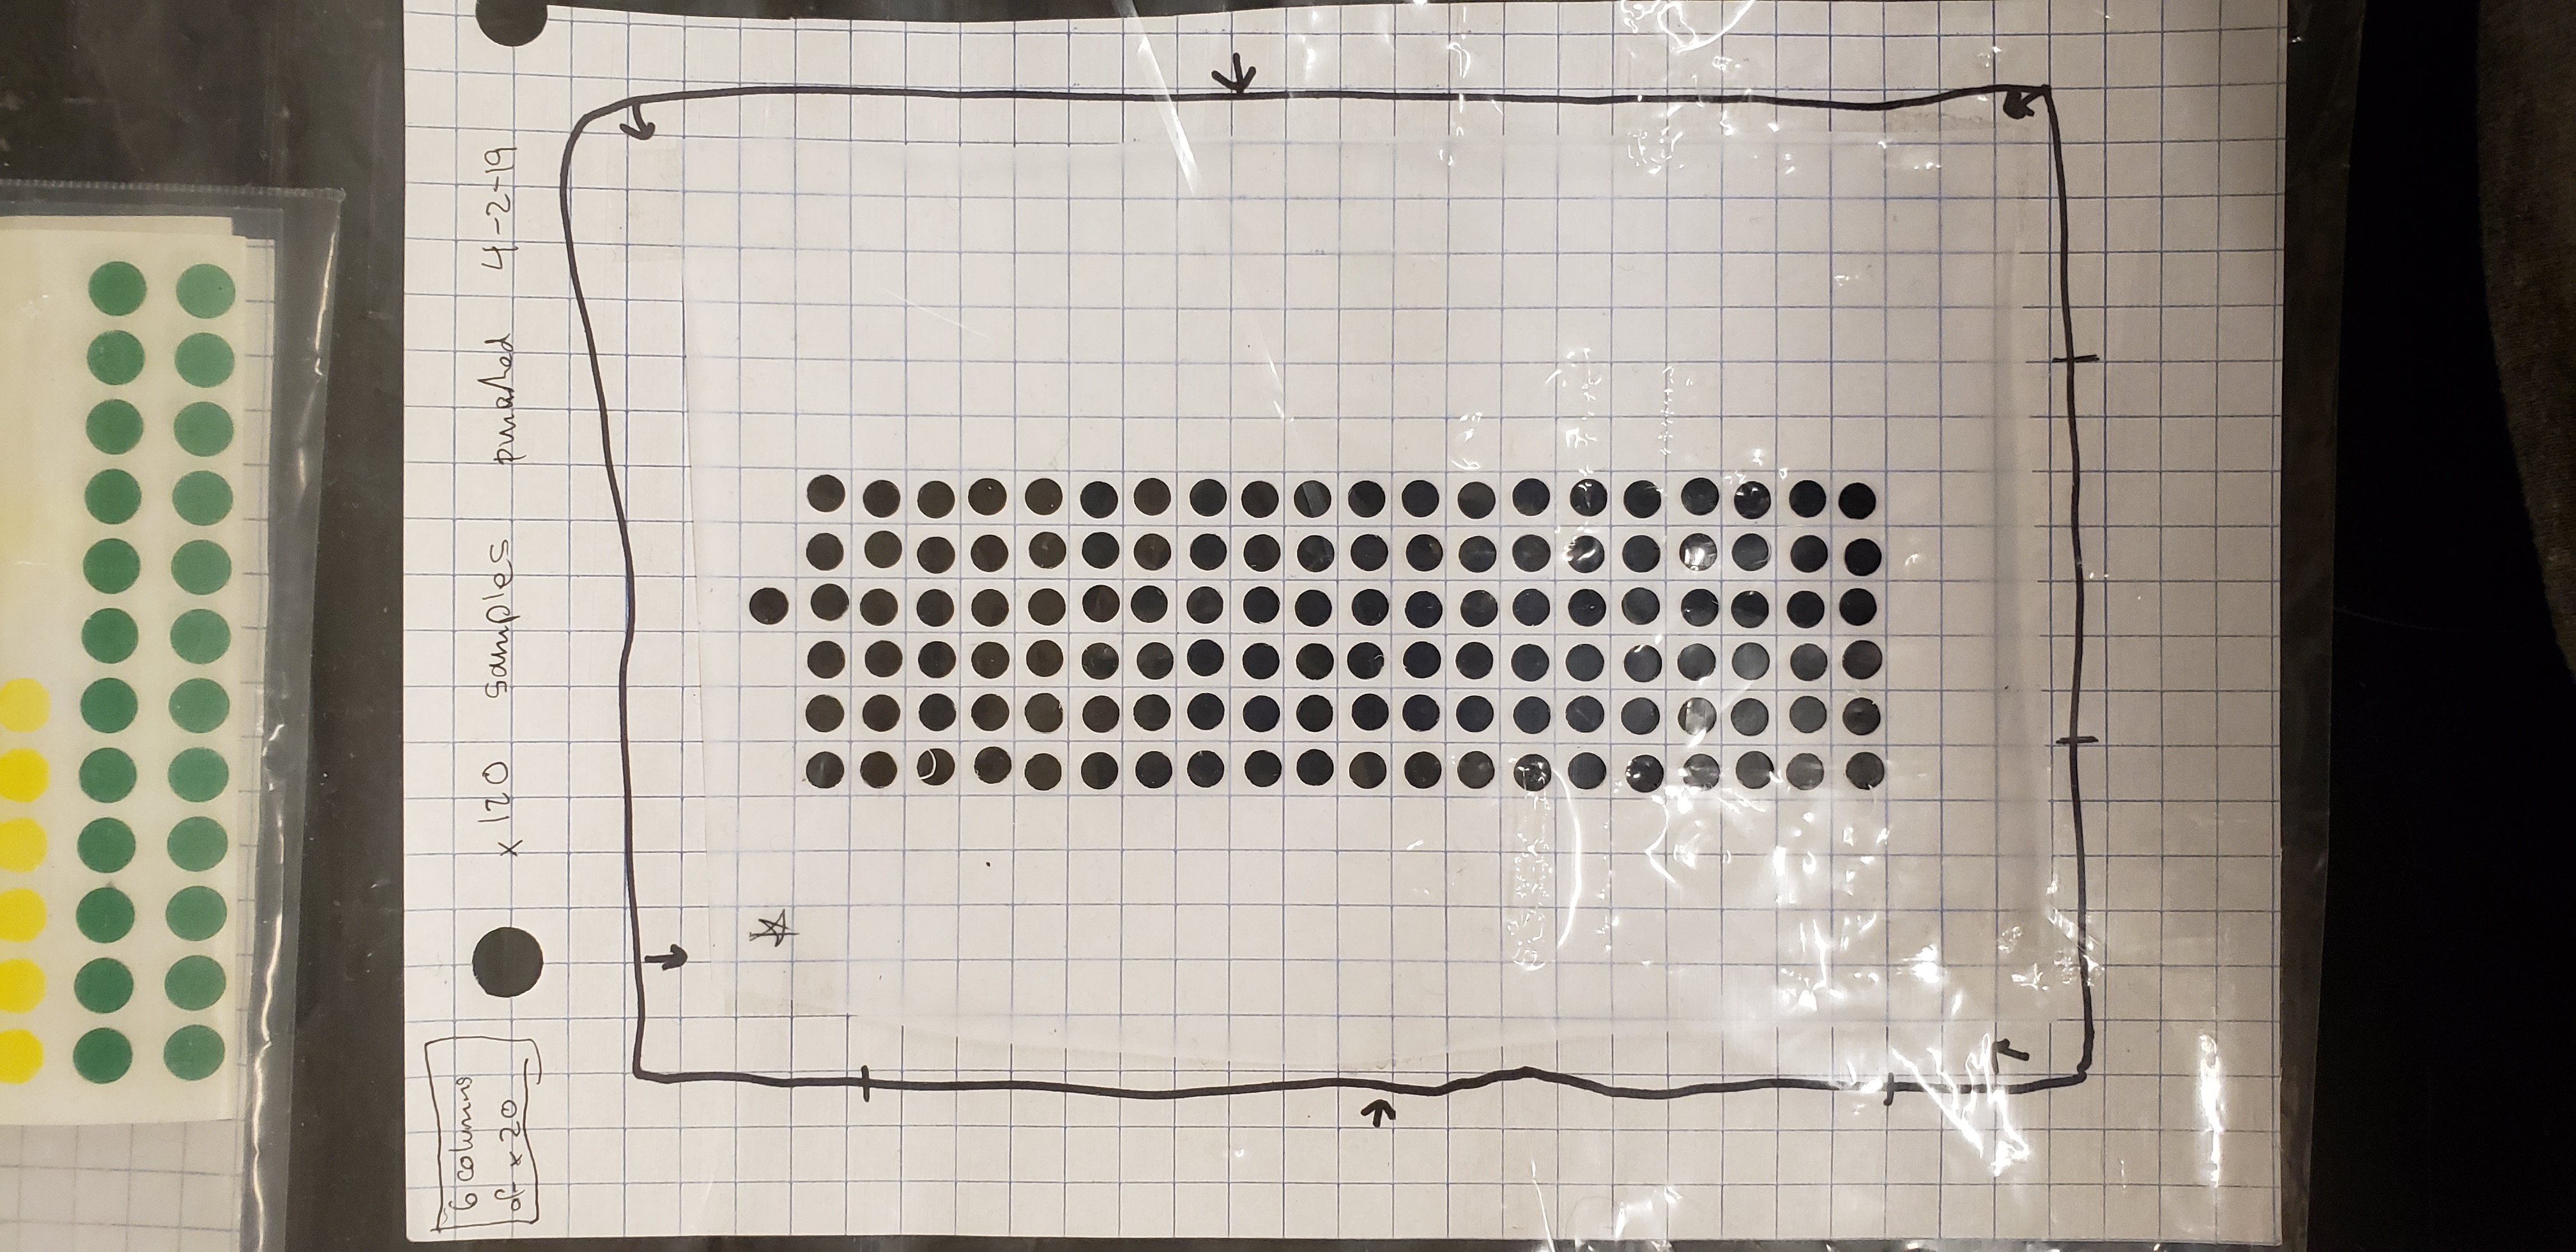 6 columns
of x 20
x 120 samples punched 4-2-19